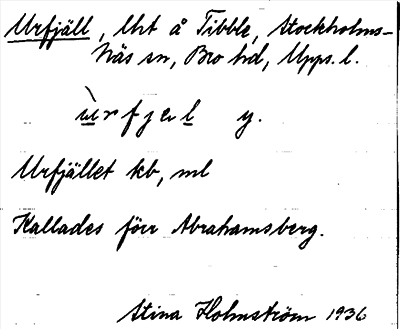 Urfjäll, lht å Tibble, Stockholms-
Näs sn, Bro hd, Upps. l.
ùrfjel y.
Urfjället kb, ml
Kallades förr Abrahamsberg.
Stina Holmström 1936